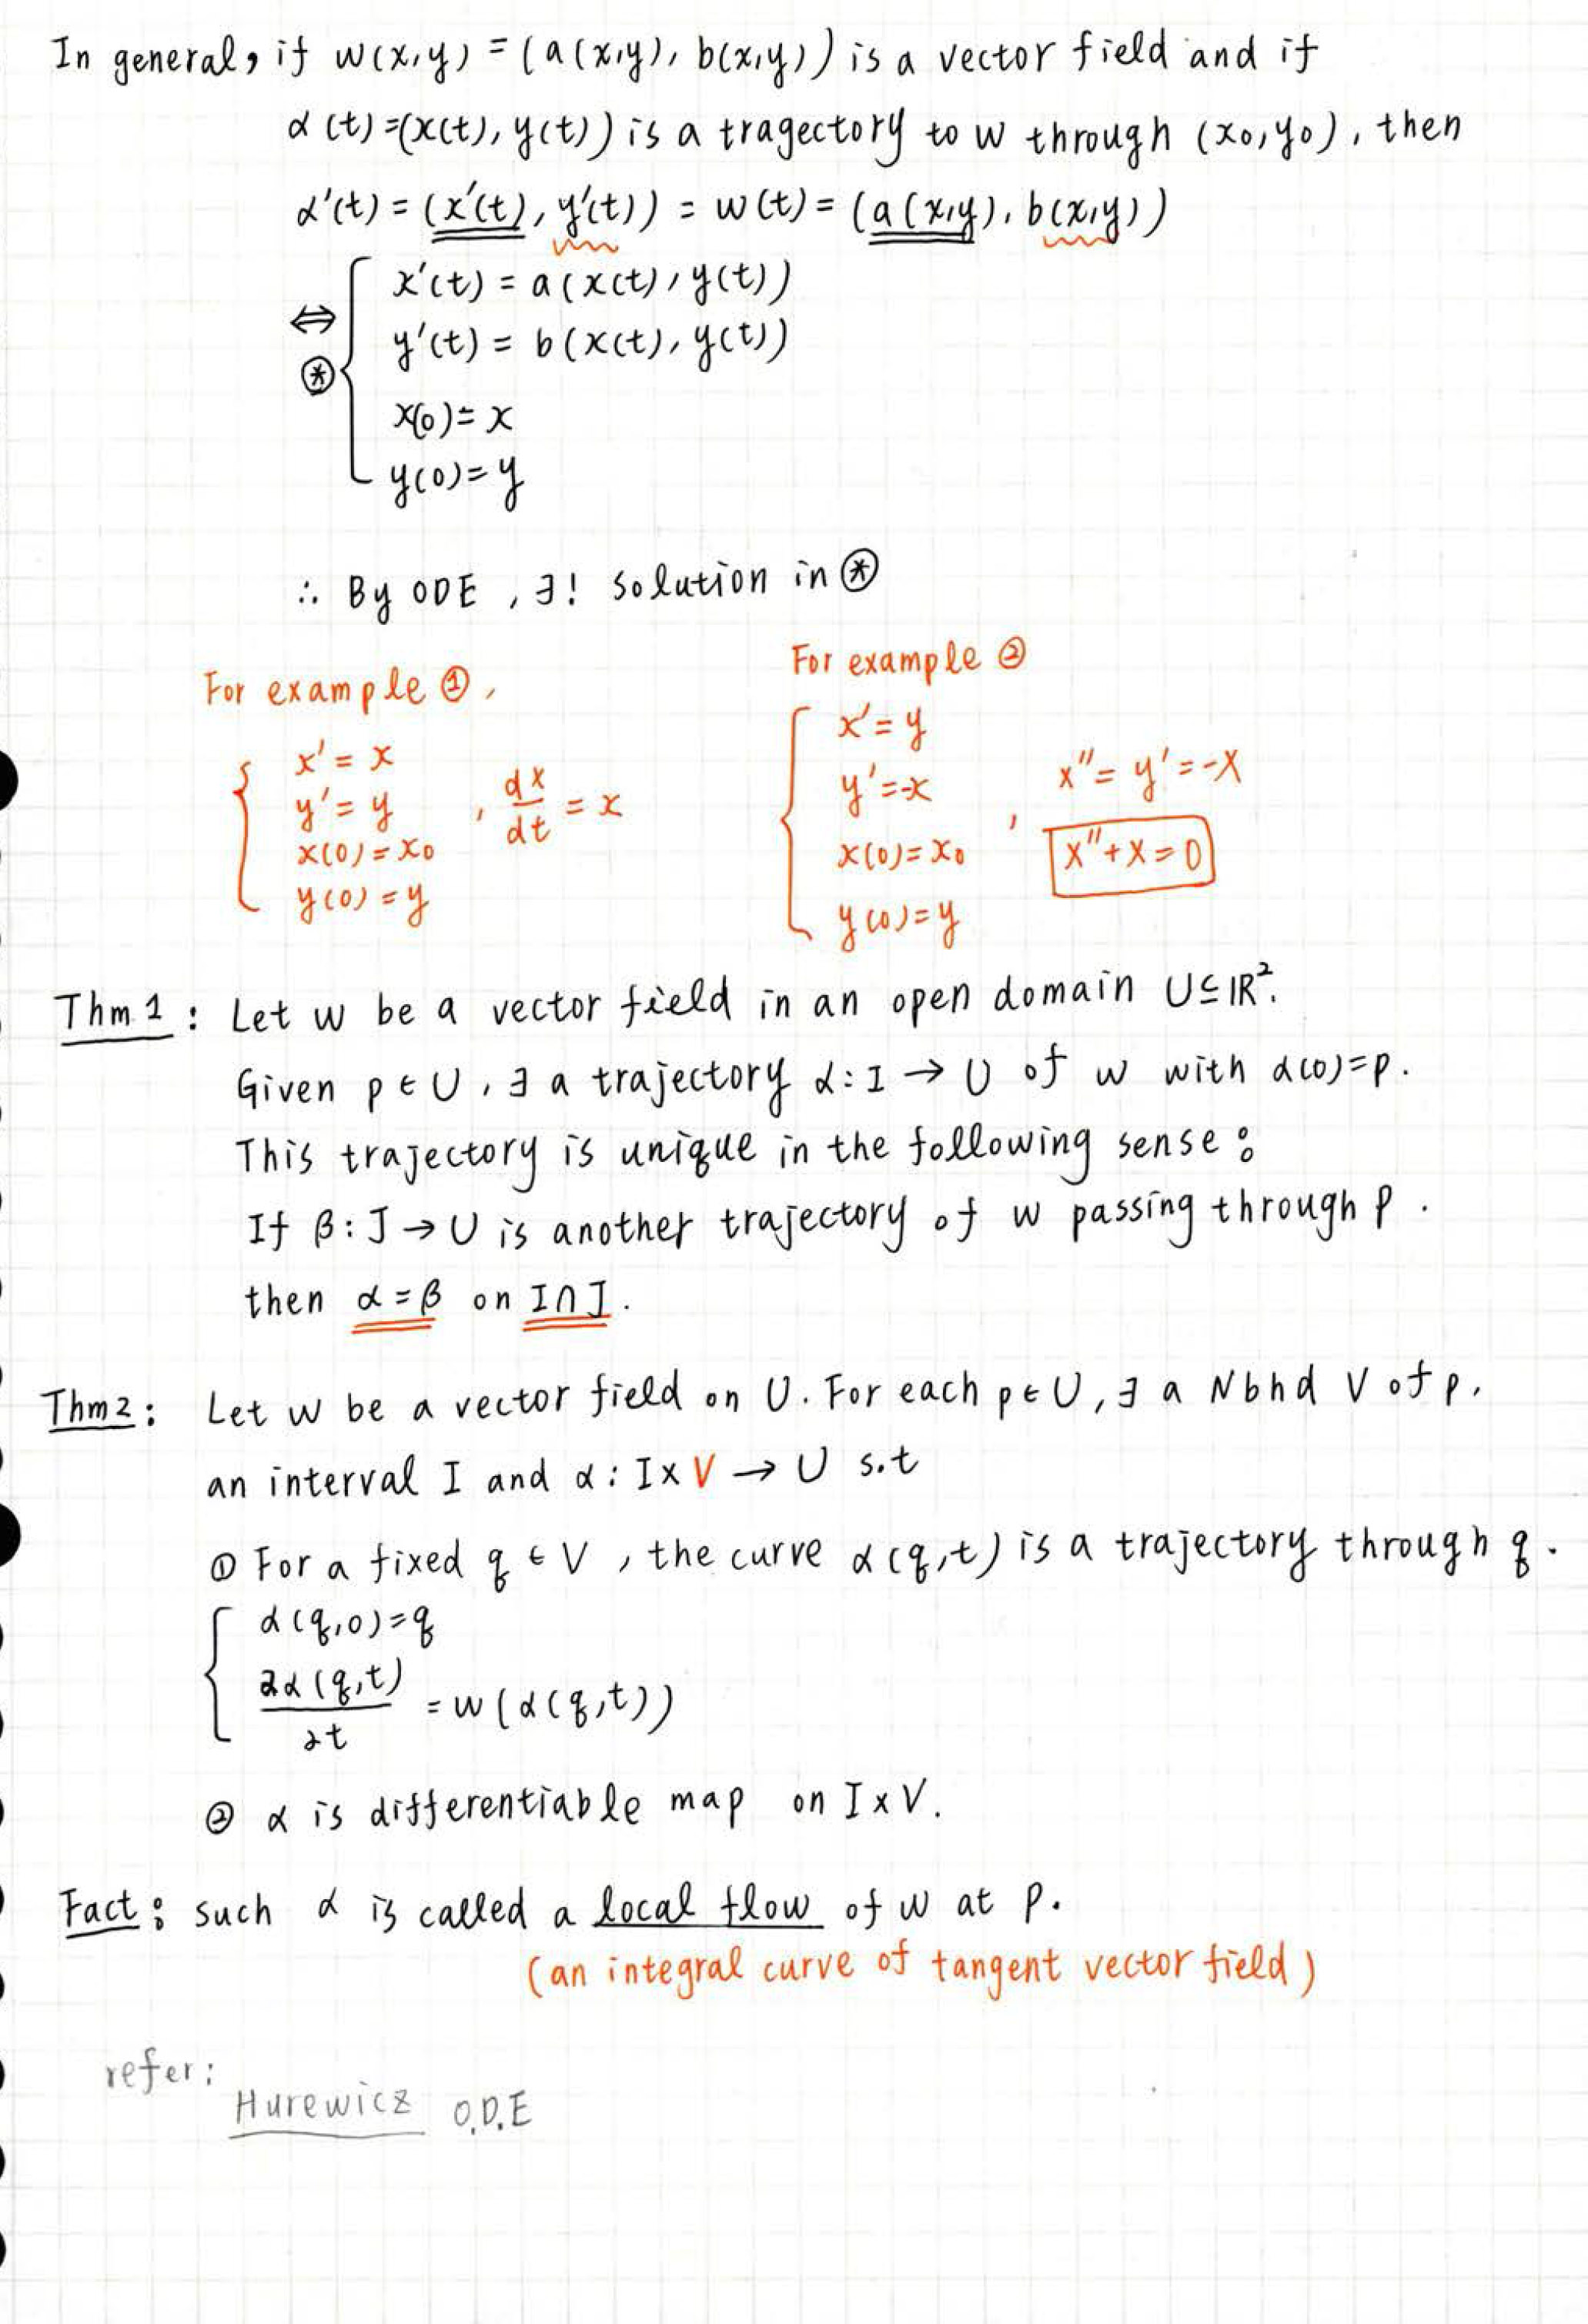 In general, if w(x,y) = (a(x,y), b(x,y)) is a vector field and if
α(t)=(x(t), y(t)) is a tragectory to w through (x0,y0), then
α'(t) = (x'(t), y'(t)) = w(t) = (a(x,y), b(x,y))
x'(t) = a(x(t), y(t))
⇔
y'(t) = b(x(t), y(t))
⊛
x(0)=x
y(0)=y
∴ By ODE, ∃! solution in ⊛
For example ①,
x' = x
y' = y , dx/dt = x
x(0)=x0
y(0)=y
For example ②
x'=y
y'=-x
x(0)=x0
y(0)=y
, x''=y'=-x
x''+x=0
Thm 1: Let w be a vector field in an open domain U⊆ℝ².
Given p∈U, ∃ a trajectory α:I→U of w with α(0)=p.
This trajectory is unique in the following sense:
If β:J→U is another trajectory of w passing through p.
then α=β on I∩J.
Thm 2: Let w be a vector field on U. For each p∈U, ∃ a Nbhd V of p,
an interval I and α: I×V→U s.t
① For a fixed q∈V, the curve α(q,t) is a trajectory through q.
α(q,0)=q
∂α(q,t)/∂t = w(α(q,t))
② α is differentiable map on I×V.
Fact: such α is called a local flow of w at p.
(an integral curve of tangent vector field)
refer:
Hurewicz O.D.E